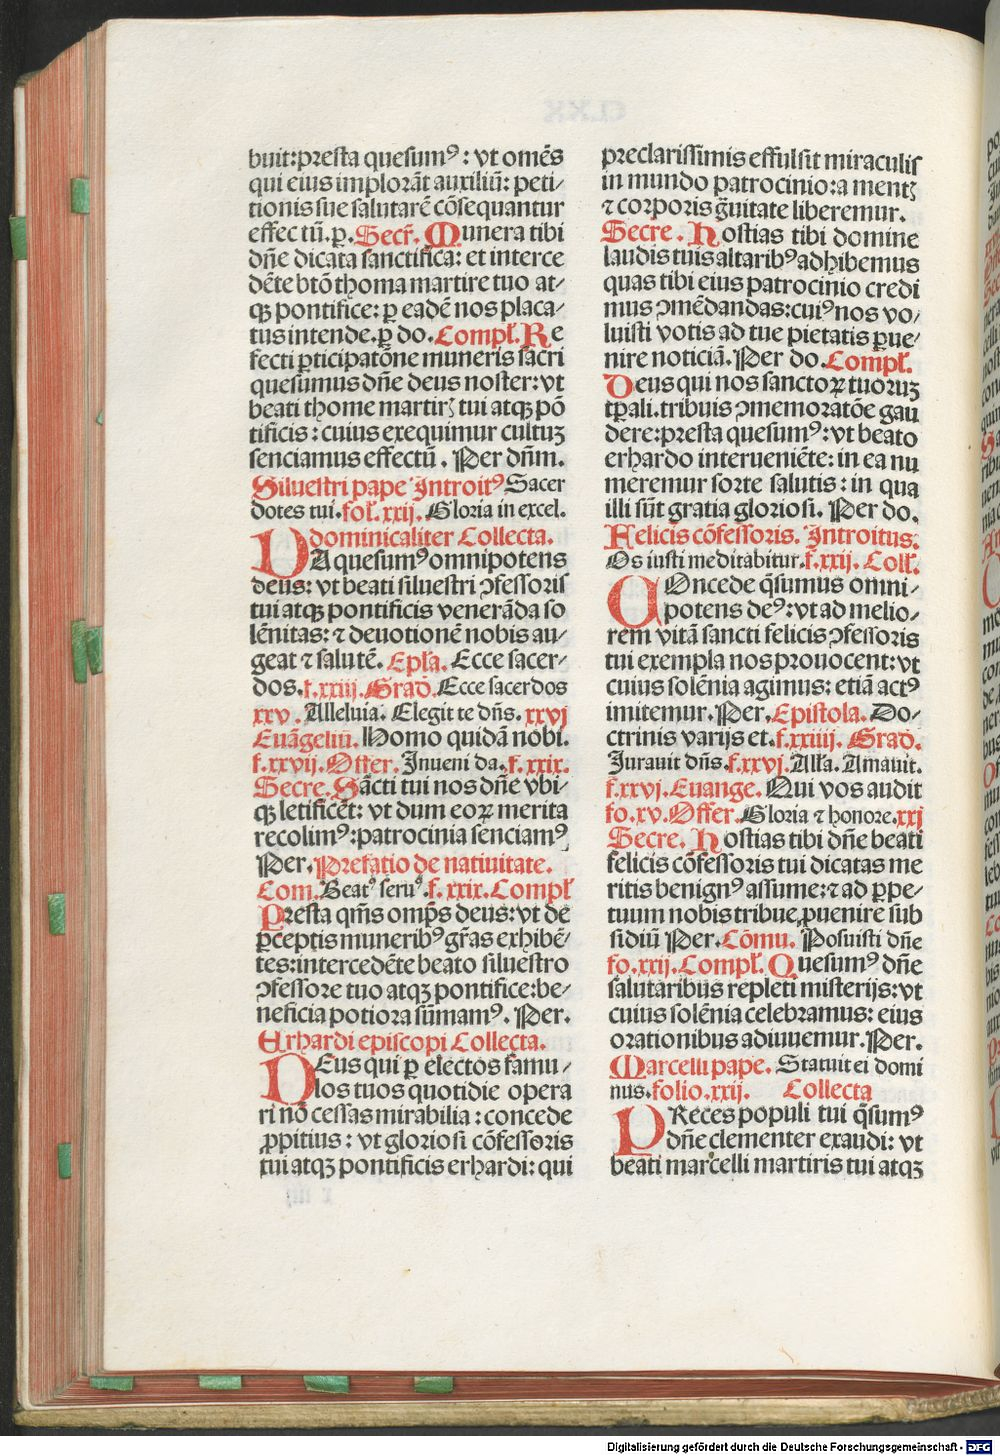 buit: presta quesumꝰ: vt omēs
qui eius implorāt auxiliū: peti⸗
tionis sue salutarē cōsequantur
effectū. ꝑ. Secr̄. Munera tibi
dn̄e dicata sanctifica: et interce
dēte btō thoma martire tuo at⸗
qꝫ pontifice: ꝑ eadē nos placa⸗
tus intende. ꝑ do. Compl̄. Re
fecti ꝑticipatōne muneris sacri
quesumus dn̄e deus noster: vt
beati thome martirꝭ tui atqꝫ pō
tificis: cuius exequimur cultuꝫ
senciamus effectū. Per dn̄m.
Siluestri pape Introitꝰ Sacer
dotes tui. fol. xxij. Gloria in excel.
dominicaliter Collecta.
DA quesumꝰ omnipotens
deus: vt beati siluestri ꝯfessoris
tui atqꝫ pontificis venerāda so
lēnitas: ⁊ deuotionē nobis au⸗
geat ⁊ salutē. Epl̄a. Ecce sacer⸗
dos. f. xxiij. Grad̄. Ecce sacerdos
xxv. Alleluia. Elegit te dn̄s. xxvj
Euāgeliū. Homo quidā nobi.
f. xxvij. Offer. Inueni da. f. xxix.
Secre. Sācti tui nos dn̄e vbi⸗
qꝫ letificēt: vt dum eoꝝ merita
recolimꝰ: patrocinia senciamꝰ
Per. Prefatio de natiuitate.
Com. Beatꝰ seruꝰ. f. xxix. Compl̄
Presta qm̄s omp̄s deus: vt de
ꝑceptis muneribꝰ gr̄as exhibē⸗
tes: intercedēte beato siluestro
ꝯfessore tuo atqꝫ pontifice: be⸗
neficia potiora sūmamꝰ. Per.
Erhardi episcopi Collecta.
DEus qui ꝑ electos famu⸗
los tuos quotidie opera
ri nō cessas mirabilia: concede
ꝓpitius: vt gloriosi cōfessoris
tui atqꝫ pontificis erhardi: qui
preclarissimis effulsit miraculis
in mundo patrocinio: a mentꝭ
⁊ corporis g̃uitate liberemur.
Secre. Hostias tibi domine
laudis tuis altaribꝰ adhibemus
quas tibi eius patrocinio credi
mus ꝯmēdandas: cuiꝰ nos vo⸗
luisti votis ad tue pietatis ꝑue⸗
nire noticiā. Per do. Compl̄.
Deus qui nos sanctoꝝ tuoruꝫ
tꝑali. tribuis ꝯmemoratōe gau
dere: presta quesumꝰ: vt beato
erhardo interueniēte: in ea nu
meremur sorte salutis: in qua
illi sūt gratia gloriosi. Per do.
Felicis cōfessoris. Introitus.
Os iusti meditabitur. f. xxij. Coll̄.
COncede q̄sumus omni⸗
potens deꝰ: vt ad melio⸗
rem vitā sancti felicis ꝯfessoris
tui exempla nos prouocent: vt
cuius solēnia agimus: etiā actꝰ
imitemur. Per. Epistola. Do⸗
ctrinis varijs et. f. xxiiij. Grad.
Jurauit dn̄s. f. xxvj. All̄a. Amauit.
f. xxvj. Euange. Qui vos audit
fo. xv. Offer. Gloria ⁊ honore. xxj
Secre. Hostias tibi dn̄e beati
felicis cōfessoris tui dicatas me
ritis benignꝰ assume: ⁊ ad ꝑpe⸗
tuum nobis tribue ꝓuenire sub
sidiū Per. Cōmu. Posuisti dn̄e
fo. xxij. Compl̄. Quesumꝰ dn̄e
salutaribus repleti misterijs: vt
cuius solēnia celebramus: eius
orationibus adiuuemur. Per.
Marcelli pape. Statuit ei domi
nus. folio. xxij. Collecta
PReces populi tui q̄sumꝰ
dn̄e clementer exaudi: vt
beati marcelli martiris tui atqꝫ
Digitalisierung gefördert durch die Deutsche Forschungsgemeinschaft - DFG